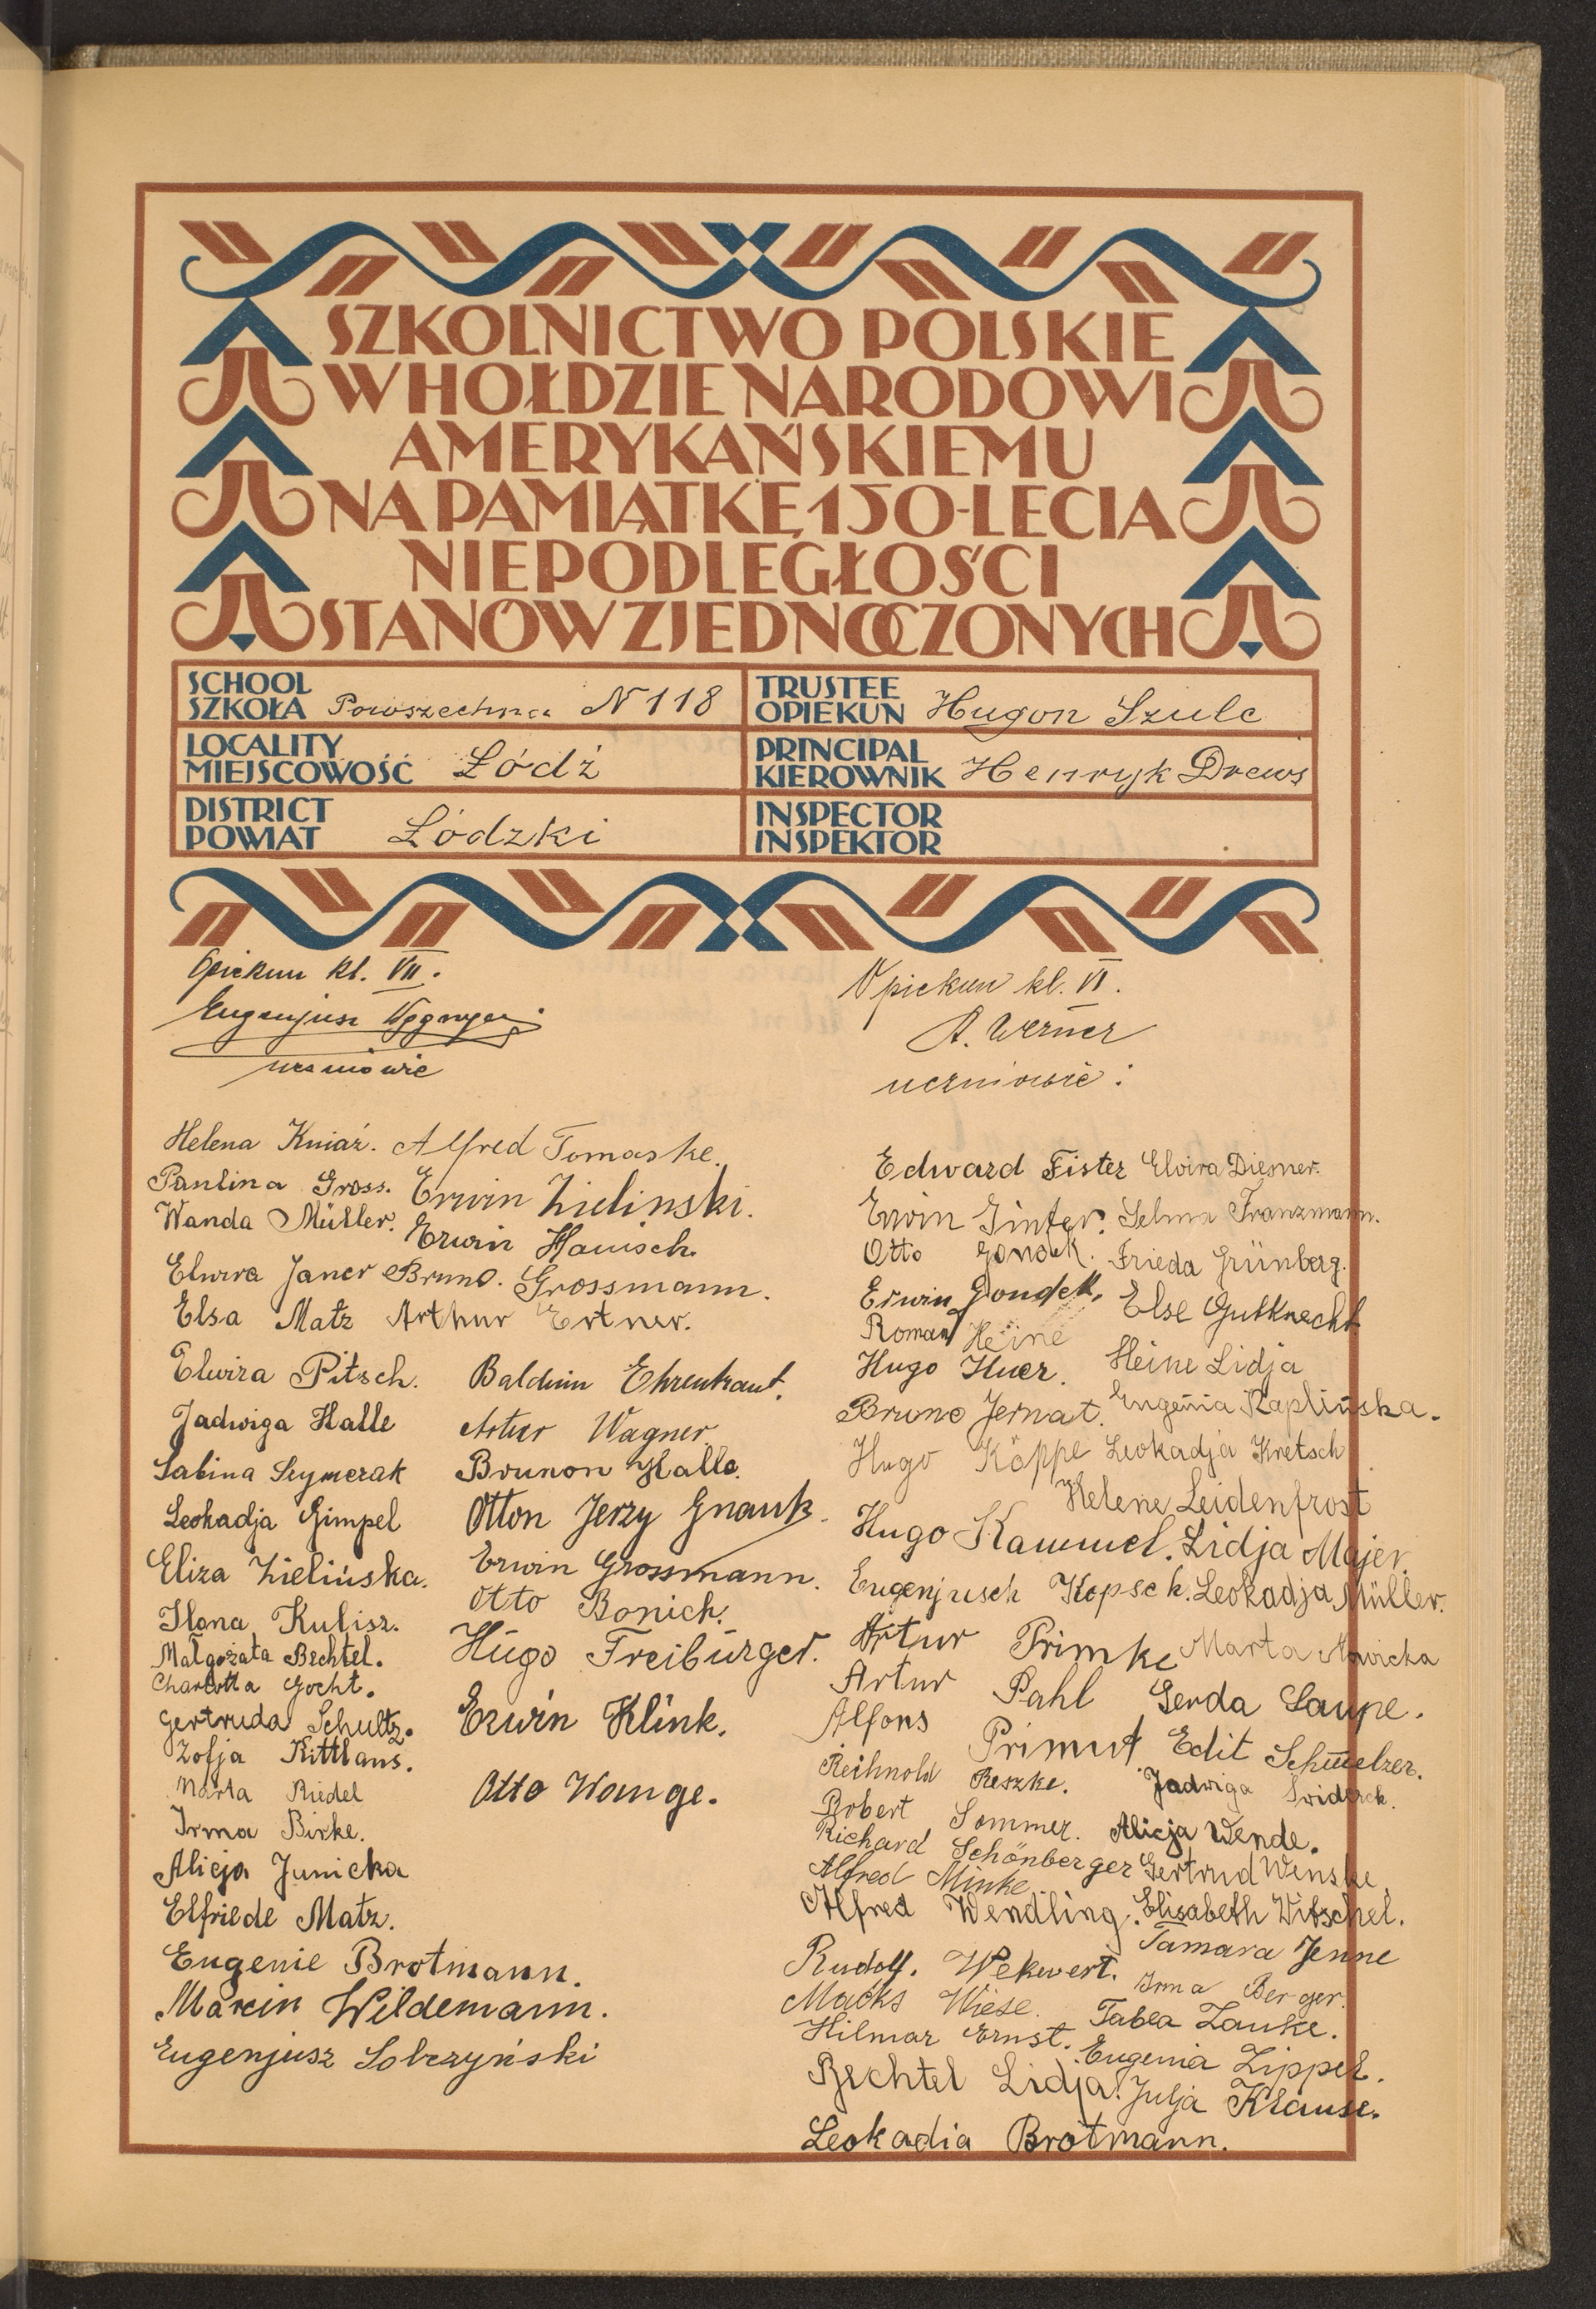 SZKOLNICTWO POLSKIE
W HOŁDZIE NARODOWI
AMERYKAŃSKIEMU
NA PAMIĄTKĘ 150-LECIA
NIEPODLEGŁOŚCI
STANÓW ZJEDNOCZONYCH
SCHOOL
SZKOŁA Powszechna N 118
TRUSTEE
OPIEKUN Hugon Szulc
LOCALITY
MIEJSCOWOŚĆ Łódź
PRINCIPAL
KIEROWNIK Henryk Drews
DISTRICT
POWIAT Łódzki
INSPECTOR
INSPEKTOR
Opiekun kl. VII.
Eugenjusz
uczniowie
Helena Kniaź.
Paulina Gross.
Wanda Müller.
Elwira Janer
Elsa Matz
Elwira Pitsch.
Jadwiga Halle
Sabina Szymczak
Leokadja Gimpel
Eliza Zielińska.
Ilona Kulisz.
Małgożata Bechtel.
Charlotta Gocht.
Gertruda Schultz.
Zofja Kittlaus.
Marta Riedel
Irma Birke.
Alicja Junicka
Elfriede Matz.
Eugenie Brotmann.
Marcin Wildemann.
Eugenjusz Sobczyński
Alfred Tomaske.
Erwin Zielinski.
Erwin Hanisch.
Bruno. Grossmann.
Arthur Ertner.
Balduin Ehrentraut.
Artur Wagner
Brunon Halle.
Otton Jerzy Gnauk.
Erwin Grossmann.
Otto Bonich.
Hugo Freiburger.
Erwin Klink.
Otto Wange.
Opiekun kl. VI.
A. Werner
uczniowie:
Edward Fister
Erwin Ginter.
Otto Gondek.
Erwin Gondek.
Roman Heine
Hugo Huer.
Bruno Jernat.
Hugo Köppe
Hugo Kammel.
Eugenjusch Kopsch.
Artur Primke
Artur Pahl
Alfons Primut
Reihnold Reszke.
Robert Sommer.
Richard Schönberger
Alfred Minke
Alfred Wendling.
Rudolf. Wekwert.
Macks Wiese.
Hilmar Ernst.
Bechtel Lidja.
Leokadia Brotmann.
Elvira Diemer.
Selma Franzmann.
Frieda Grünberg.
Else Gutknecht
Heine Lidja
Eugenia Kaplińska.
Leokadja Kretsch
Helene Leidenfrost
Lidja Majer.
Leokadja Müller.
Marta Nowicka
Gerda Saupe.
Edit Schmelzer.
Jadwiga Sviderek.
Alicja Wende.
Gertrud Wenske.
Elisabeth Witschel.
Tamara Jenne
Irma Berger.
Tabea Zauke.
Eugenia Zippel.
Julja Klause.